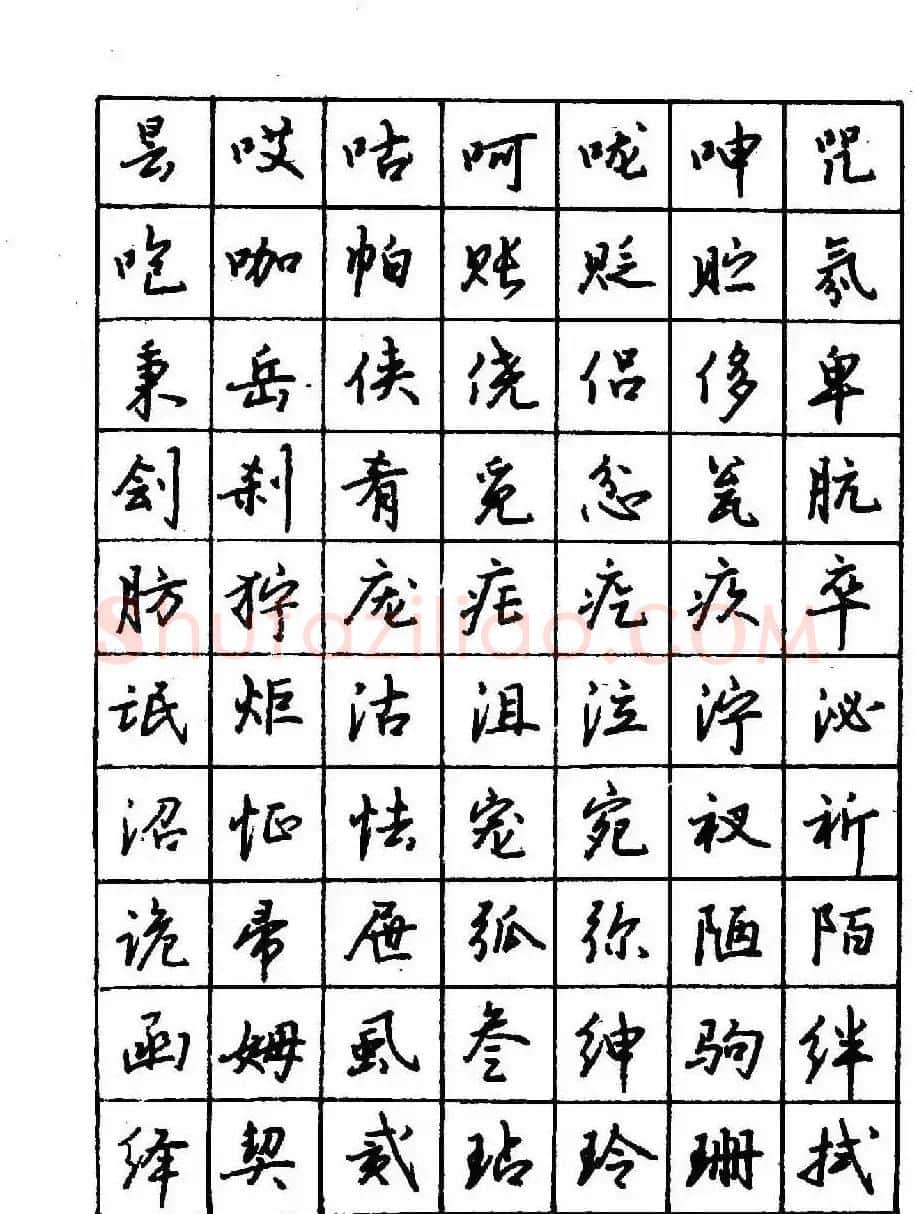 昙哎咕呵咙呻咒
咆咖帕账贬贮氛
秉岳侠侥侣侈卑
刽刹肴觅忿瓮肮
肪狞庞疟疙疚卒
氓炬沽沮泣泞泌
沼怔怯宠宛衩祈
诡帚屉弧弥陋陌
函姆虱叁绅驹绊
绎契贰玷玲珊拭
Shufaziliao.COM